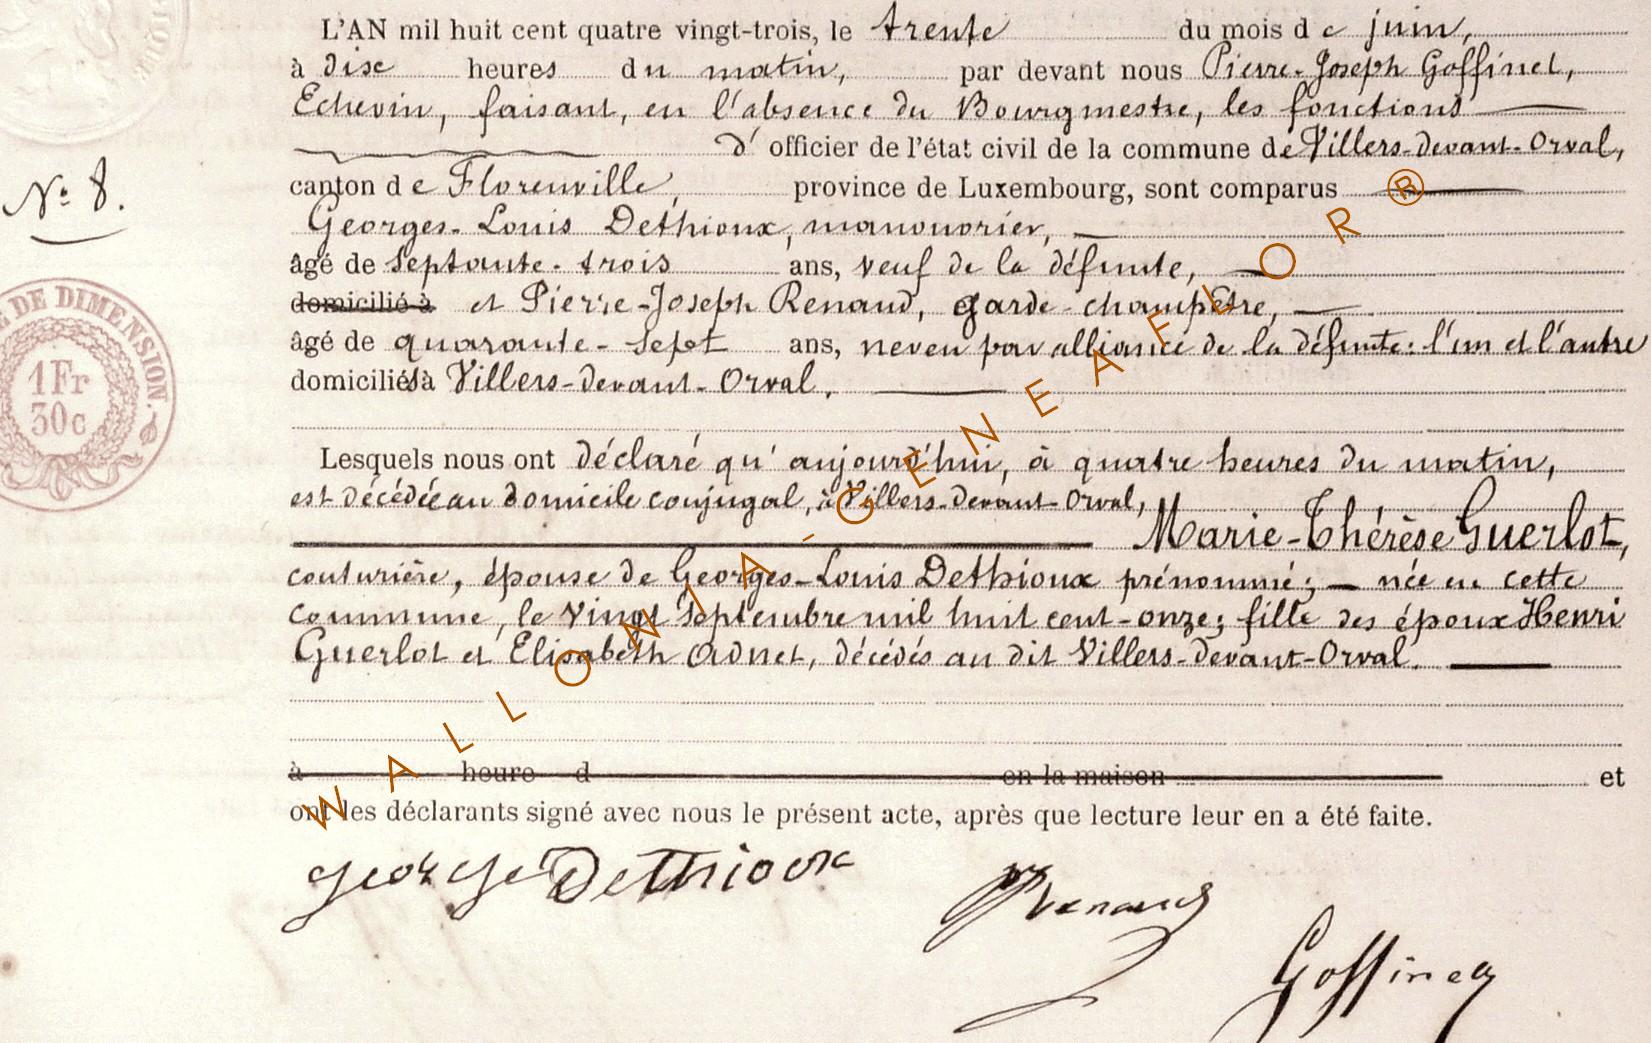 L'AN mil huit cent quatre vingt-trois, le trente du mois de juin,
à dix heures du matin, par devant nous Pierre-Joseph Goffinet,
Echevin, faisant, en l'absence du Bourgmestre, les fonctions
d'officier de l'état civil de la commune de Villers-devant-Orval,
canton de Florenville, province de Luxembourg, sont comparus
Nº 8.
Georges-Louis Dethioux, manouvrier,
âgé de septante-trois ans, veuf de la défunte,
domicilié à et Pierre-Joseph Renaud, garde-champêtre,
âgé de quarante-sept ans, neveu par alliance de la défunte: l'un et l'autre
domiciliés à Villers-devant-Orval,
DE DIMENSION.
1Fr
30c
Lesquels nous ont déclaré qu'aujourd'hui, à quatre heures du matin,
est décédée au domicile conjugal, à Villers-devant-Orval,
Marie-Thérèse Guerlot,
couturière, épouse de Georges-Louis Dethioux prénommé; née en cette
commune, le vingt septembre mil huit cent-onze; fille des époux Henri
Guerlot et Elisabeth Adnet, décédés au dit Villers-devant-Orval.
à heure d en la maison et
ont les déclarants signé avec nous le présent acte, après que lecture leur en a été faite.
george Dethioux
Renaud
Goffinet
WALLONIA-GENEAFLOR®